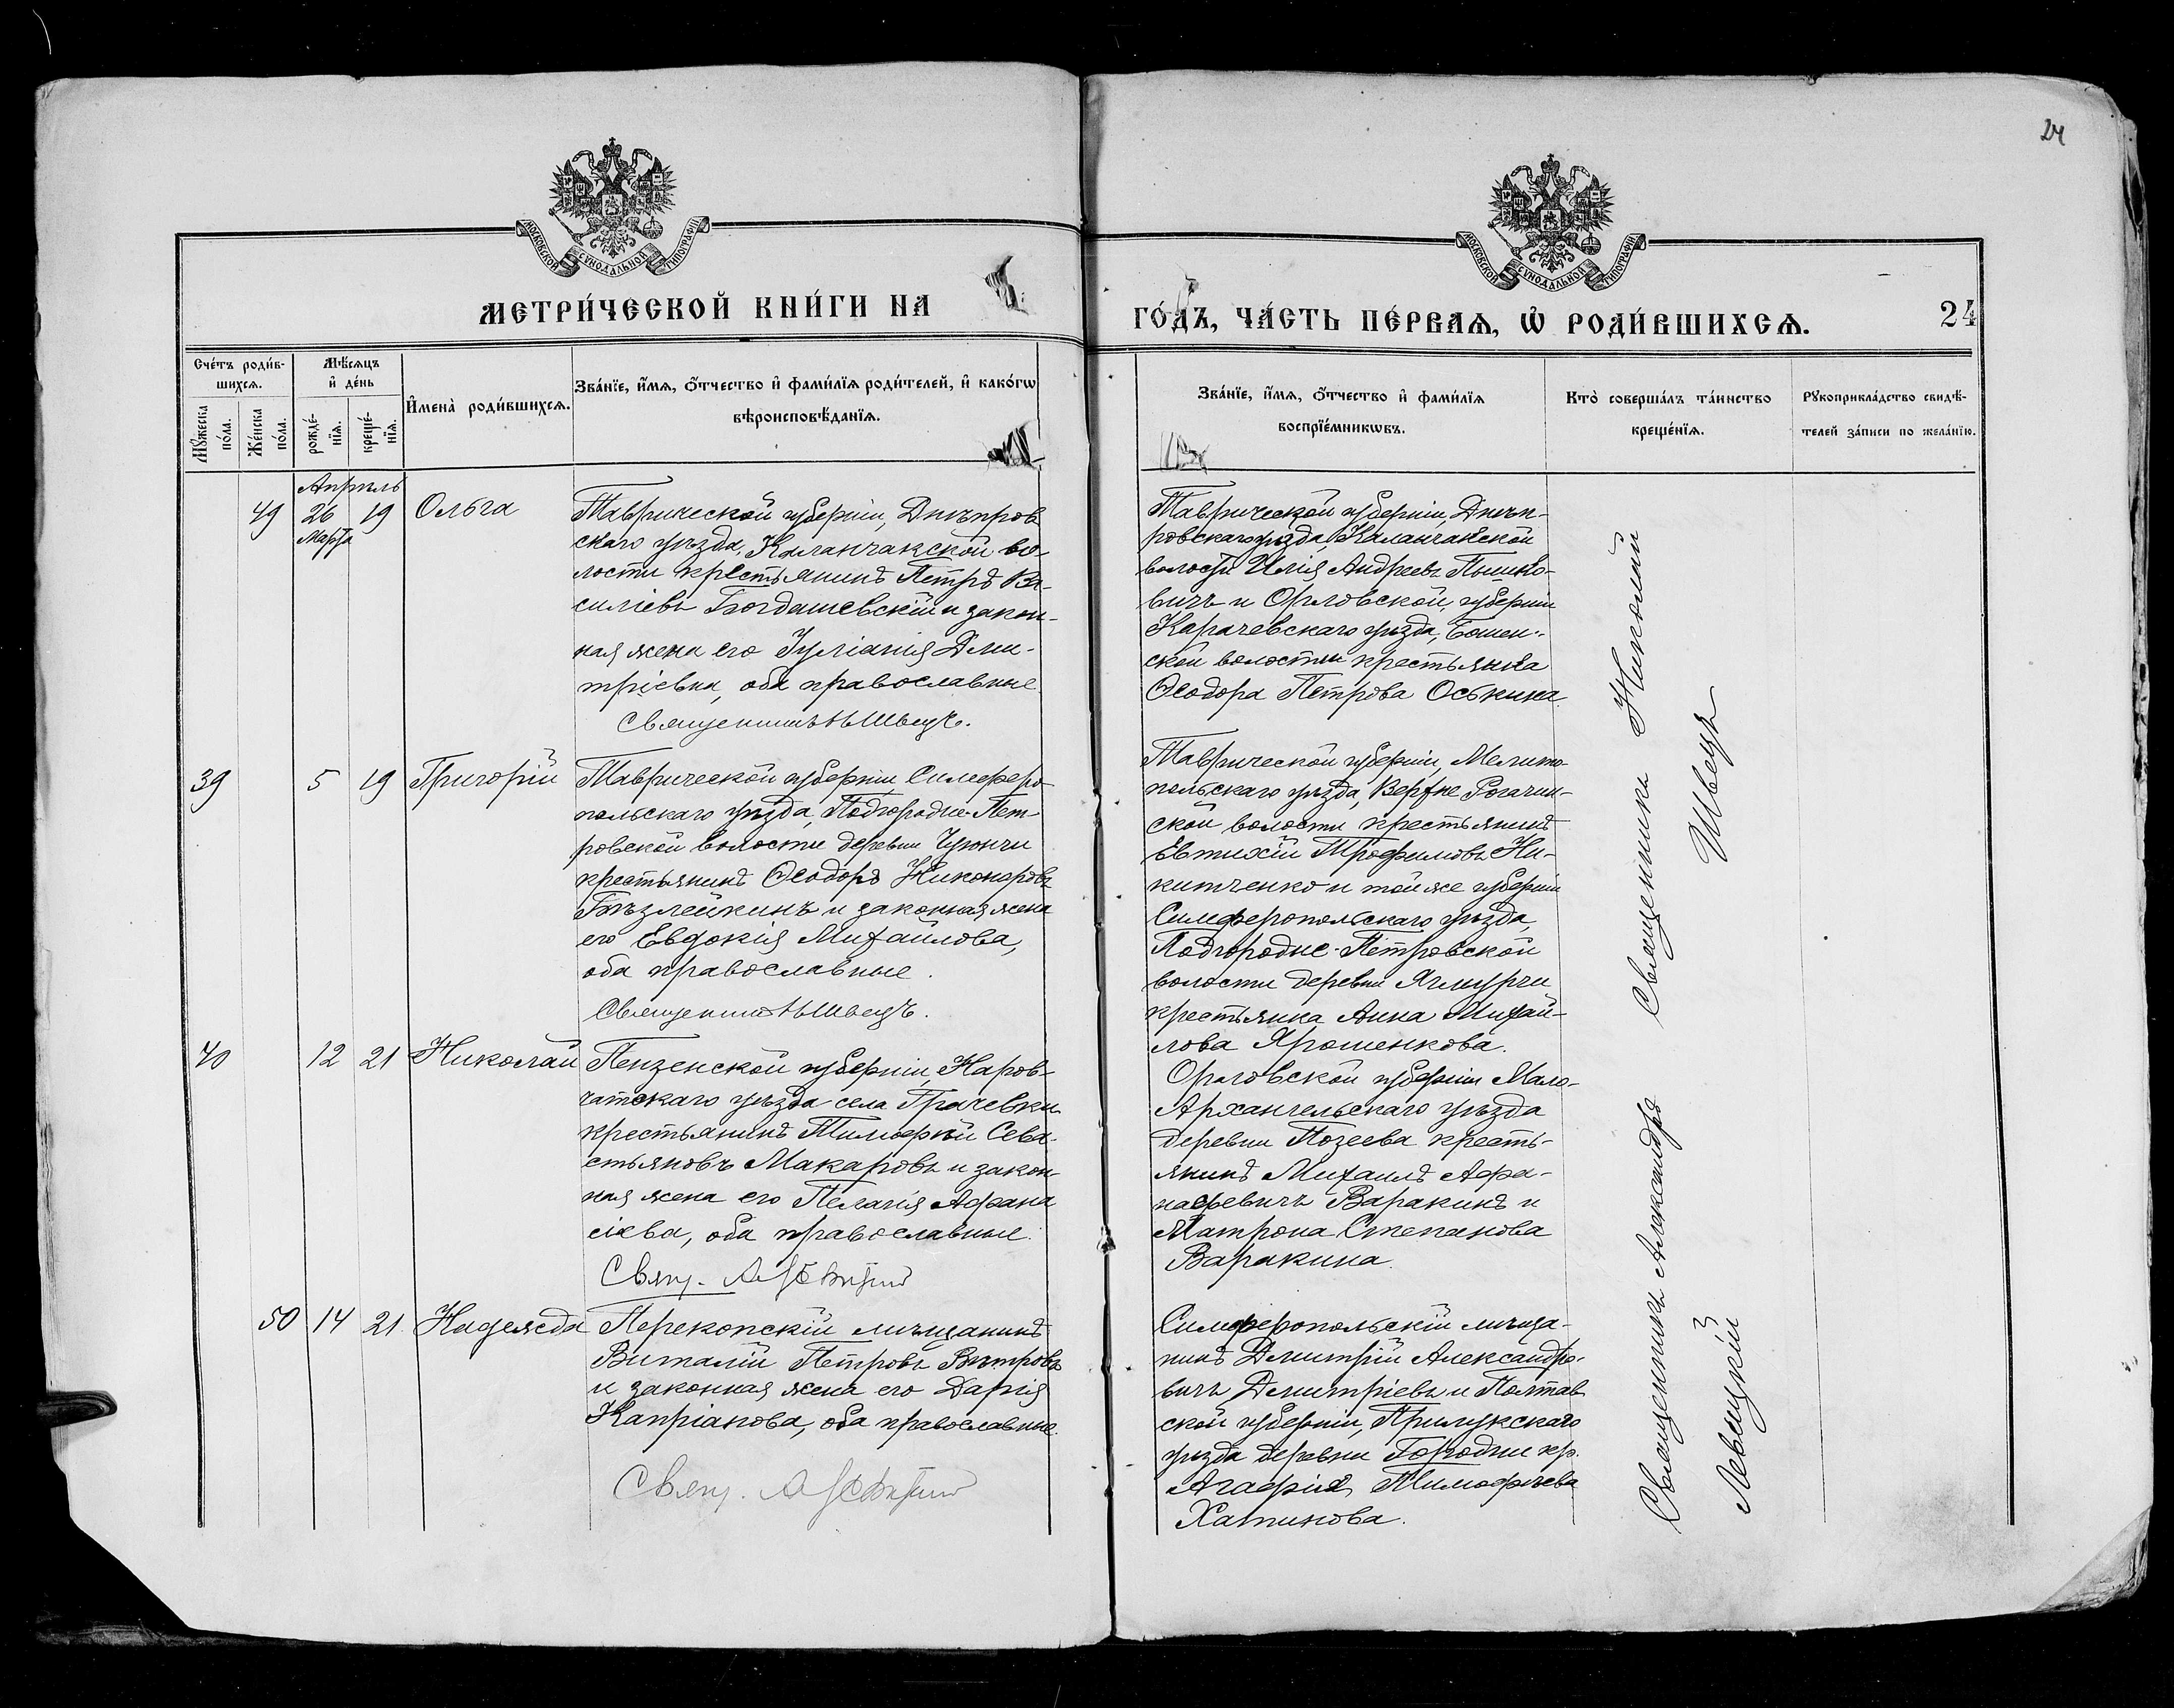 24
МОСКОВСКОЙ СѴНОДАЛЬНОЙ ТИПОГРАФІИ
МОСКОВСКОЙ СѴНОДАЛЬНОЙ ТИПОГРАФІИ
МЕТРИ́ЧЕСКОЙ КНИ́ГИ НА
ГО́ДЪ, ЧА́СТЬ ПЕ́РВАѦ, Ѽ РОДИ́ВШИХСѦ.
24
Счéтъ роди́в-
шихсѧ.
Мꙋ́жеска
по́ла.
Же́нска
по́ла.
Мѣ́сѧцъ
и҆ де́нь
рожде́-
нїѧ.
креще́-
нїѧ.
И҆мена̀ роди́вшихсѧ.
Зва́нїе, и҆́мѧ, ѻ҆́тчество и҆ фами́лїѧ роди́телей, и҆ како́гѡ
вѣроисповѣ́данїѧ.
Зва́нїе, и҆́мѧ, ѻ҆́тчество и҆ фами́лїѧ
воспрїе́мникѡвъ.
Кто̀ соверша́лъ та́инство
креще́нїѧ.
Рꙋкоприкла́дство свидѣ́-
телей за́писи по жела́нїю.
Апрѣль
49 26 19 Ольга
Марта
Таврической губерніи, Днѣпров
скаго уѣзда, Каланчакской во-
лости крестьянинъ Петръ Ва-
силіевъ Богдашевскій и закон-
ная жена его Іуліанія Дми-
тріевна, оба православные
Священникъ Н Швецъ.
Таврической губерніи, Днѣп-
ровскаго уѣзда, Каланчакской
волости Илія Андреевъ Пышко-
вичъ и Орловской губерніи
Карачевскаго уѣзда, Бошен-
ской волости крестьянка
Ѳеодора Петрова Оськина
Священникъ Николай
Швецъ
39 5 19 Григорій
Таврической губерніи, Симферо
польскаго уѣзда, Подгородне-Пет-
ровской волости деревни Чуюнчи
крестьянинъ Ѳеодоръ Никоноровъ
Бѣзлейкинъ и законная жена
его Евдокія Михайлова,
оба православные.
Священникъ Н Швецъ.
Таврической губерніи, Мелито
польскаго уѣзда, Верхне Рогачик-
ской волости крестьянинъ
Евтихій Трофимовъ Ни-
китченко и той же губерніи
Симферопольскаго уѣзда,
Подгородне-Петровской
волости деревни Яшмурчи
крестьянка Анна Михай-
лова Ярошенкова.
40 12 21 Николай
Пензенской губерніи, Наров-
чатскаго уѣзда села Грачевки
крестьянинъ Тимофей Сева-
стьяновъ Макаровъ и закон-
ная жена его Пелагія Афана
сіева, оба православные.
Свящ. А Левицкій
Орловской губерніи Мало-
Архангельскаго уѣзда
деревни Позеева кресть-
янинъ Михаилъ Афа-
насьевичъ Варакинъ и
Матрона Степанова
Варакина.
Священникъ Александръ
Левицкій
50 14 21 Надежда
Перекопскій мѣщанинъ
Виталій Петровъ Вѣтровъ
и законная жена его Дарія
Капріанова, оба православные.
Свящ. А Левицкій
Симферопольскій мѣща-
нинъ Димитрій Александро-
вичъ Димитріевъ и Полтав
ской губерніи, Прилукскаго
уѣзда деревни Городни кр.
Агафія Тимофѣева
Хатинова.